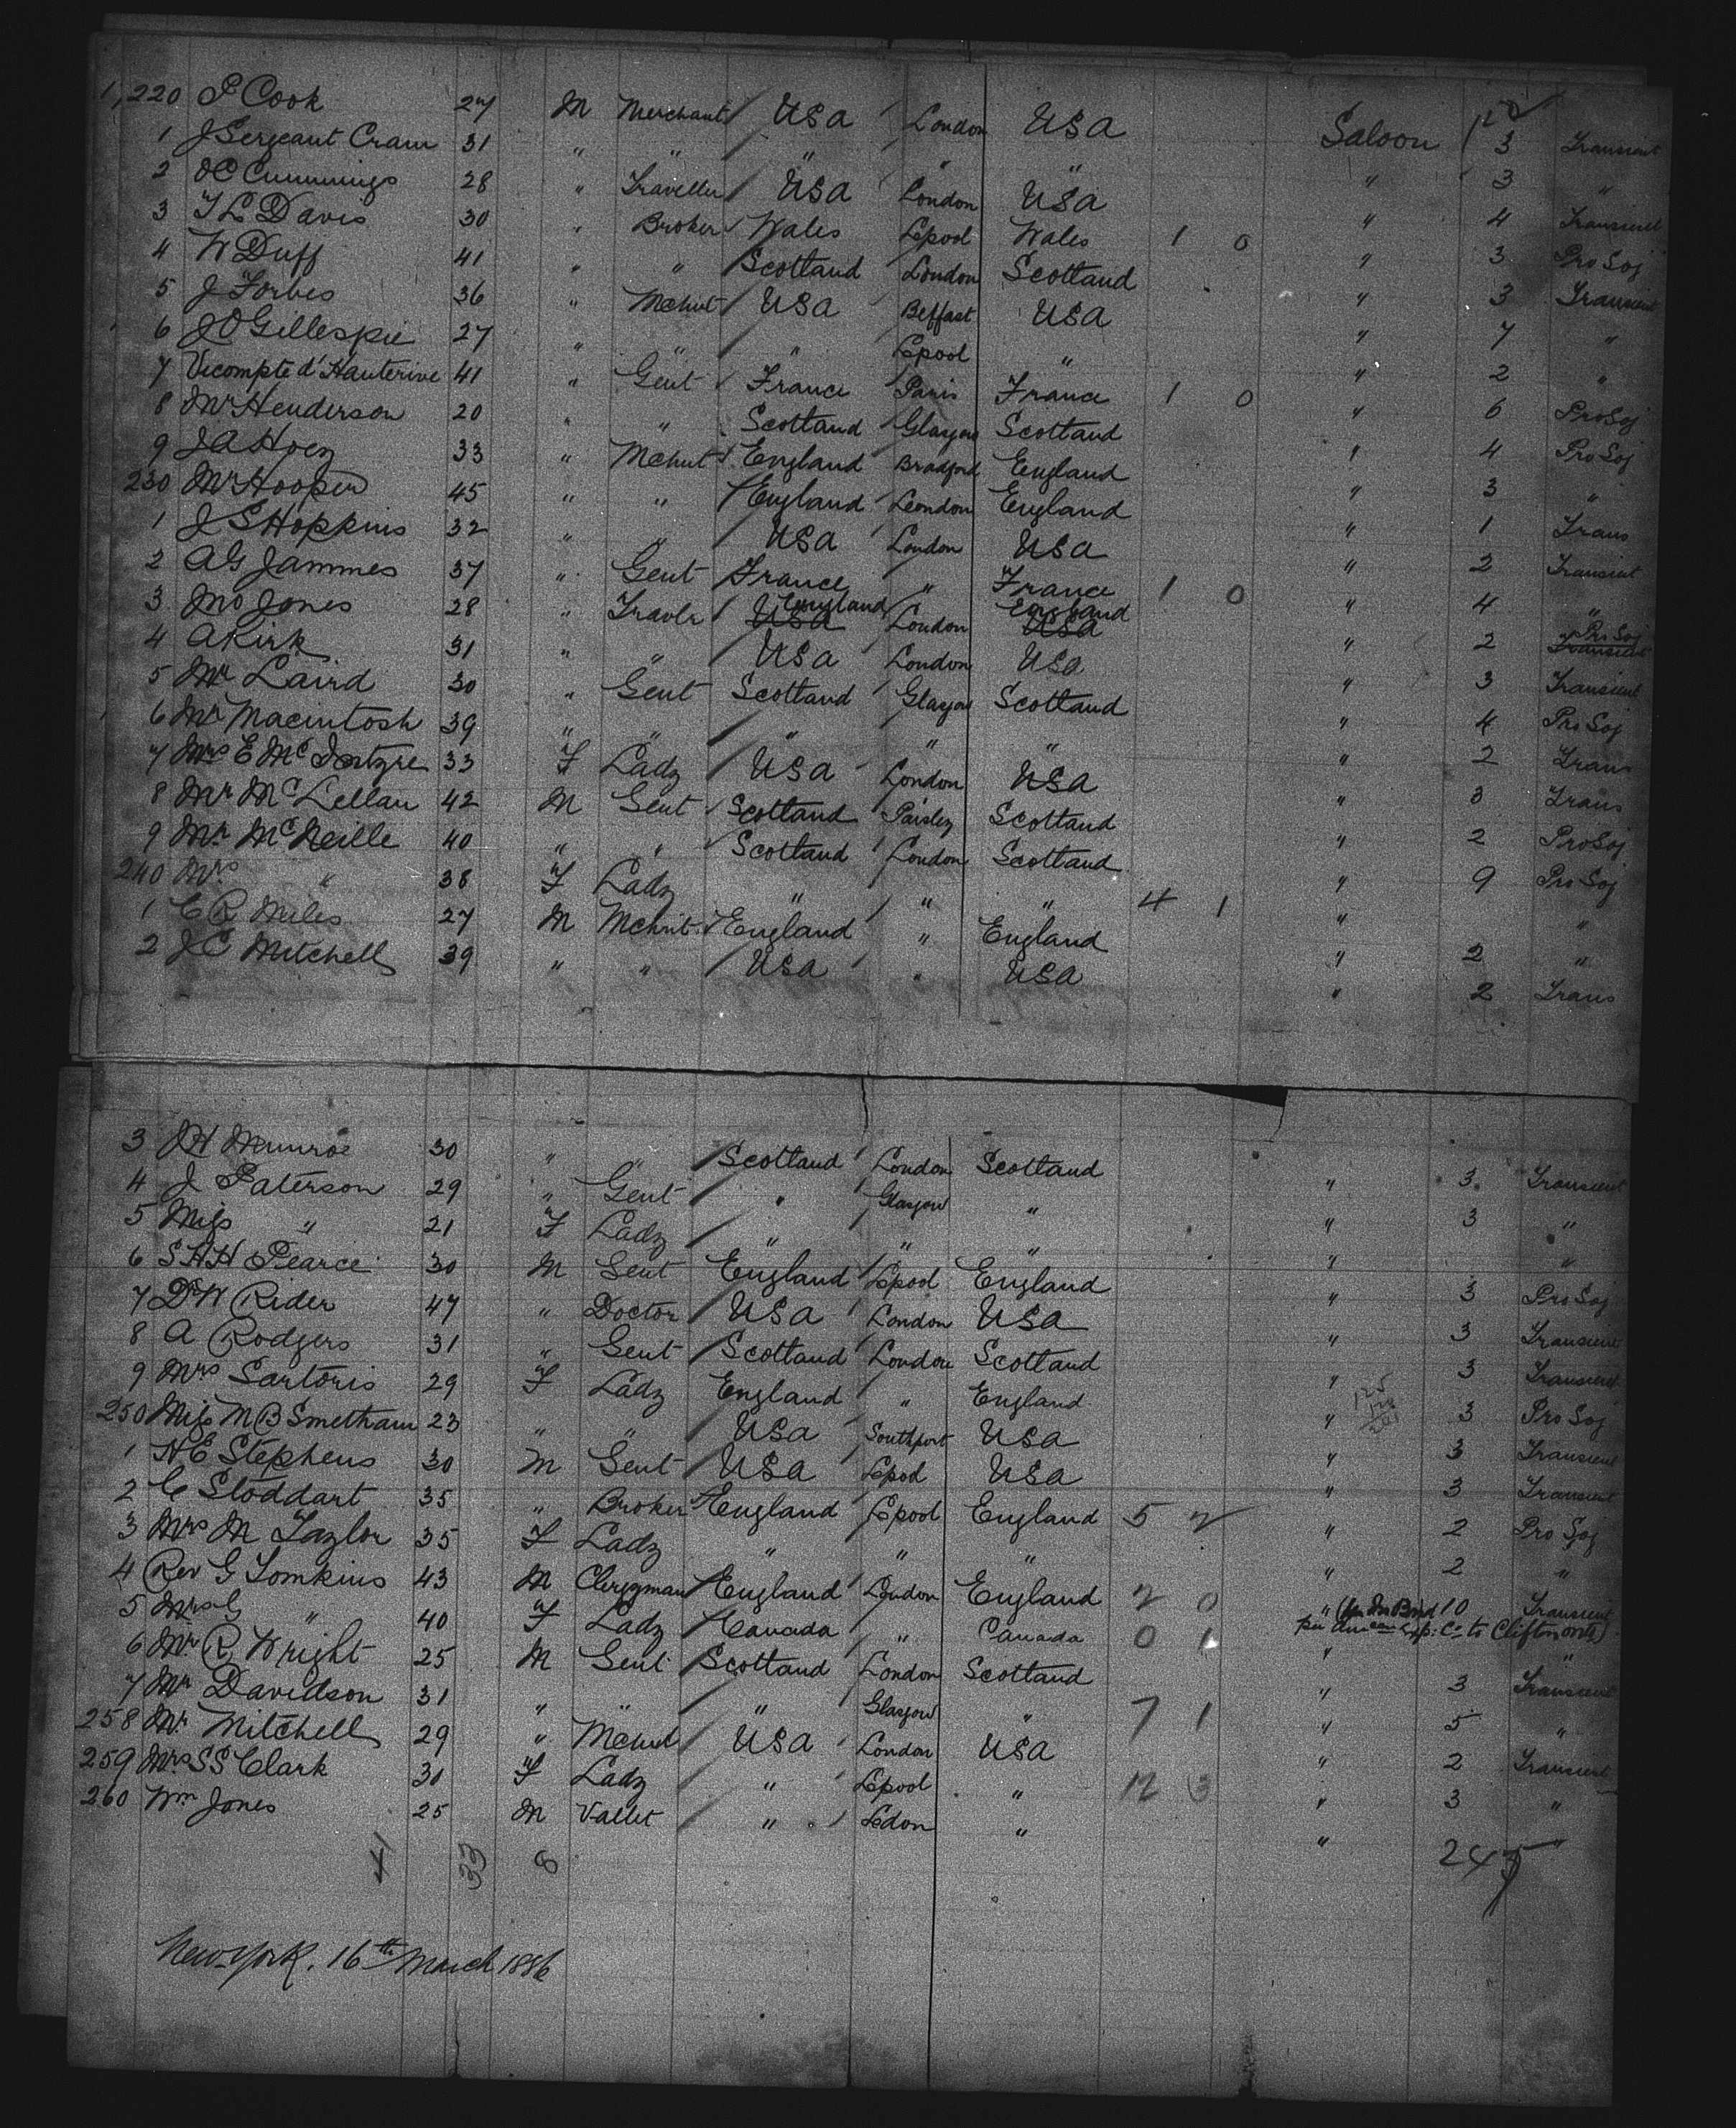 1,220 P Cook 27 M Merchant USA London USA Saloon 3 Transient
1 J Sergeant Cram 31 " " " " " " 3 "
2 J C Cummings 28 " Traveller USA London USA " 4 Transient
3 T L Davis 30 " Broker Wales Lpool Wales 1 0 " 3 Pro Soj
4 W Duff 41 " " Scotland London Scotland " 3 Transient
5 J Forbes 36 " Mchnt USA Belfast USA " 7 "
6 J O Gillespie 27 " " " Lpool " " 2 "
7 Vicompte d'Hauterive 41 " Gent France Paris France 1 0 " 6 Pro Soj
8 Mr Henderson 20 " " Scotland Glasgow Scotland " 4 Pro Soj
9 J A Hoey 33 " Mchnt England Bradford England " 3 "
230 Mr Hooper 45 " " England London England " 1 Trans
1 J S Hopkins 32 " " USA London USA " 2 Transient
2 A G Jammes 37 " Gent France " France 1 0 " 4 "
3 Jno Jones 28 " Travlr England USA London England USA " 2 Pro Soj Transient
4 A Kirk 31 " " USA London USA " 3 Transient
5 Mr Laird 30 " Gent Scotland Glasgow Scotland " 4 Pro Soj
6 Mr Macintosh 39 " " " " " " 2 Trans
7 Mrs E McIntyre 33 F Lady USA London USA " 3 Trans
8 Mr McLellan 42 M Gent Scotland Paisley Scotland " 2 Pro Soj
9 Mr McNeille 40 " " Scotland London Scotland " 9 Pro Soj
240 Mrs " 38 F Lady " " " 4 1 " "
1 C R Miles 27 M Mchnt England " England " 2 "
2 J C Mitchell 39 " " USA " USA " 2 Trans
3 J H Munroe 30 " " Scotland London Scotland " 3 Transient
4 J Paterson 29 " Gent " Glasgow " " 3 "
5 Miss " 21 F Lady " " " " "
6 S H H Pearce 30 M Gent England Lpool England " 3 Pro Soj
7 Dr W Rider 47 " Doctor USA London USA " 3 Transient
8 A Rodgers 31 " Gent Scotland London Scotland " 3 Transient
9 Mrs Sartoris 29 F Lady England " England " 3 Pro Soj
250 Miss M B Smetham 23 " " USA Southport USA " 3 Transient
1 H E Stephens 30 M Gent USA Lpool USA " 3 Transient
2 C Stoddart 35 " Broker England Lpool England 5 2 " 2 Pro Soj
3 Mrs M Taylor 35 F Lady " " " " 2 "
4 Rev G Tomkins 43 M Clergyman England London England 2 0 " 10 Transient
5 Mrs G " 40 F Lady Canada " Canada 0 1 " "
6 Mr R Wright 25 M Gent Scotland London Scotland " 3 Transient
7 Mr Davidson 31 " " " Glasgow " 7 1 " 5 "
258 Mr Mitchell 29 " Mchnt USA London USA " 2 Transient
259 Mrs S S Clark 30 F Lady " Lpool " 12 3 " 3 "
260 Wm Jones 25 M Vallet " Ldon " " "
33 8 247
New York. 16th March 1886